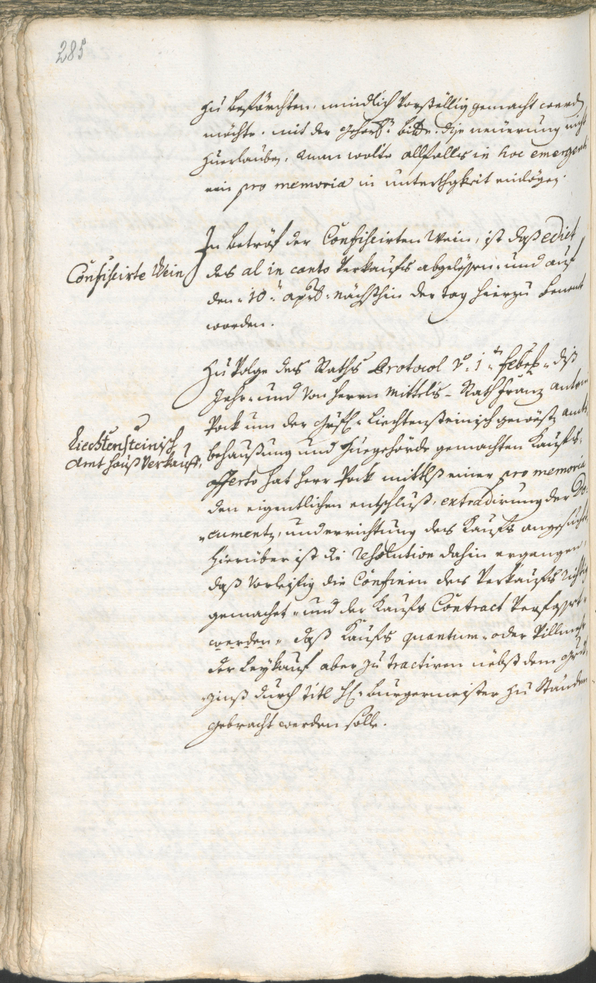 285
zu beförchten, mündlich vorställig gemacht werd
möchte, mit der gehors. bitte, dise neüerung nicht
zuerlauben, man wolte allfalls in hoc emergenti
ein pro memoria in unterthgkeit einlegen.
Confiscirte Wein
In betröf der Confiscirten Wein, ist daß edict
des al in canto verkaufs abgelesen, und auf
den 10t. april nächsthin der tag hierzu benent
worden.
Liechtensteinisch
Amt hauß verkauf.
Zu folge des Raths Protocol de 1t. Febr. diß
Jahr, und von herrn Mittels-Rath Franz Anton
Pock um der Liechtensteinisch geweste amts
behaußung und zuegehörde gemachten Kaufs,
offerto hat herr Pock mittls einer pro memoria
den eigentlichen entschluß, extradirung der Do-
cumenten, und errichtung des Kaufs angesucht.
hierüber ist die resolution dahin ergangen,
daß vorleifig die Confinen des Verkaufs richtig
gemachet, und der Kaufs Contract verfasset
werden, daß Kaufs quantum, oder
der Leykauf aber zu tractiren nebst dem
durch titl H. burgermeister zu Standen
gebracht werden solle.